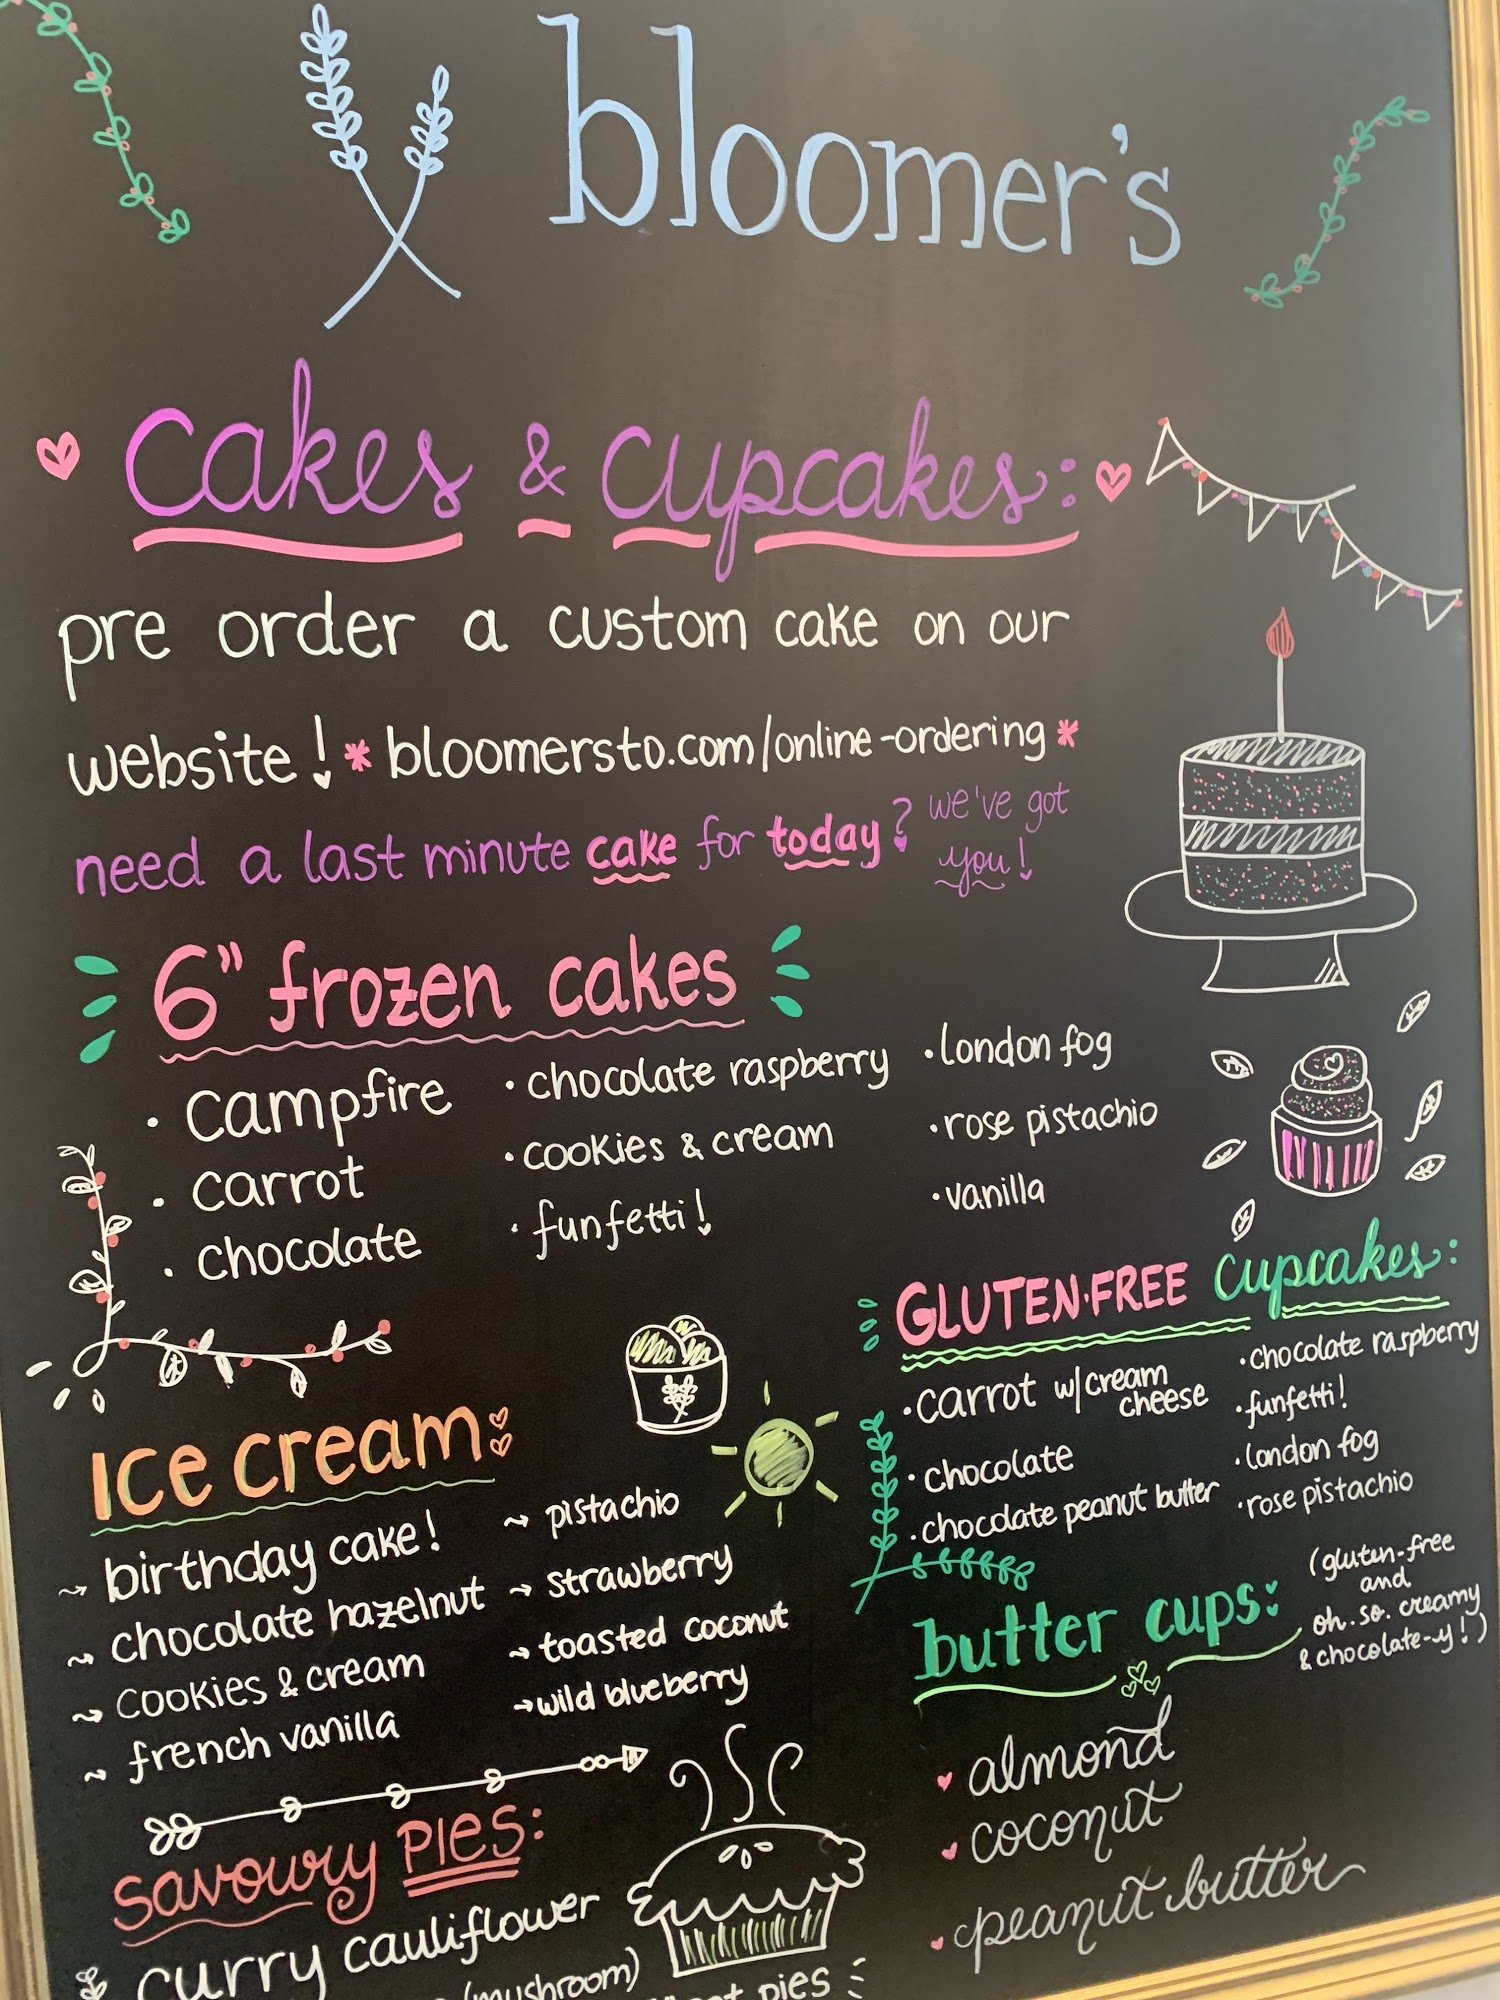 bloomer's
cakes & cupcakes:
pre order a custom cake on our
website! * bloomersto.com/online-ordering *
need a last minute cake for today? we've got
you!
6" frozen cakes
• campfire
• carrot
• chocolate
• chocolate raspberry
• cookies & cream
• funfetti!
• london fog
• rose pistachio
• vanilla
GLUTEN-FREE cupcakes:
• carrot w/cream
cheese
• chocolate
• chocolate peanut butter
• chocolate raspberry
• funfetti!
• london fog
• rose pistachio
Ice cream:
birthday cake!
chocolate hazelnut
cookies & cream
french vanilla
pistachio
strawberry
toasted coconut
wild blueberry
butter cups:
(gluten-free
and
oh. so. creamy
& chocolate-y!)
almond
coconut
peanut butter
savoury PIES:
curry cauliflower
(mushroom)
pies